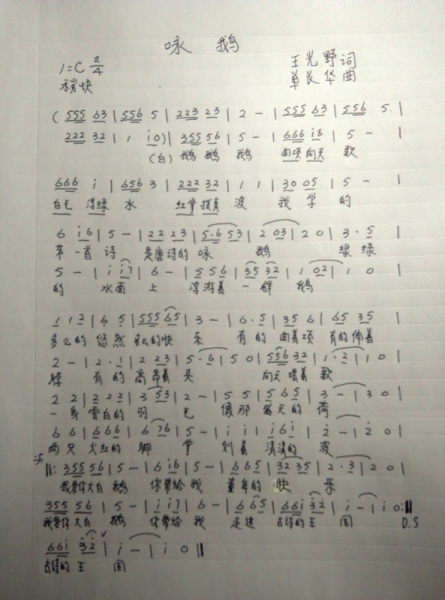 咏 鹅
1=C 2/4 王光野 词
稍快 单长华 曲
( 555 63 | 556 5 | 223 23 | 2 - | 555 63 | 556 5 |
222 32 | 1 i0 ) | 355 56 | 5 - | 666 i6 | 5 - |
(白) 鹅 鹅 鹅 曲项向天 歌
666 i | 656 3 | 222 32 | 1 1 | 30 05 | 5 - |
白毛 浮绿 水 红掌拨清 波 我 学 的
6 i6 | 5 - | 22 23 | 5·6 53 | 2 03 | 20 | 3·5 |
第一首 诗 是唐诗的 咏 鹅 绿绿
5 - | i i7 | 6 - | 5 56 | 35 32 | 1 02 | 1 0 |
的 水面 上 浮游着 一群 鹅
1 12 | 6 5 | 555 65 | 3 - | 6·5 | 35 6 | 65 35 |
多么的 悠然 多么的快 乐 有的 曲着项 有的伸着
2 - | 2·1 | 2 23 | 5·6 | 5 0 | 556 32 | 1·2 | 1 0 |
脖 有的 高昂着 头 向天 唱着 歌
22 | 223 | 3 53 | 2 - | 55 | 565 | 3 - | 30 |
一身 雪白的 羽 毛 像那 夏天的 荷
66 | 666 | 6 76 | 5 - | i i | i6i | 2 - | 20 |
两只 火红的 脚 掌 划着 清清的 波
||: 355 56 | 5 - | 6 i6 | 5 - | 6 65 | 32 35 | 2·3 | 20 |
我爱你大白 鹅 你带给 我 童年的 快 乐
355 56 | 5 - | i i7 | 6 - | 6 65 | 66i 32 | i - | i 0 :||
我爱你大白 鹅 你带给 我 走进 古诗的 王 国 D.S
66i 32 | i - | i·0 ||
古诗的 王 国